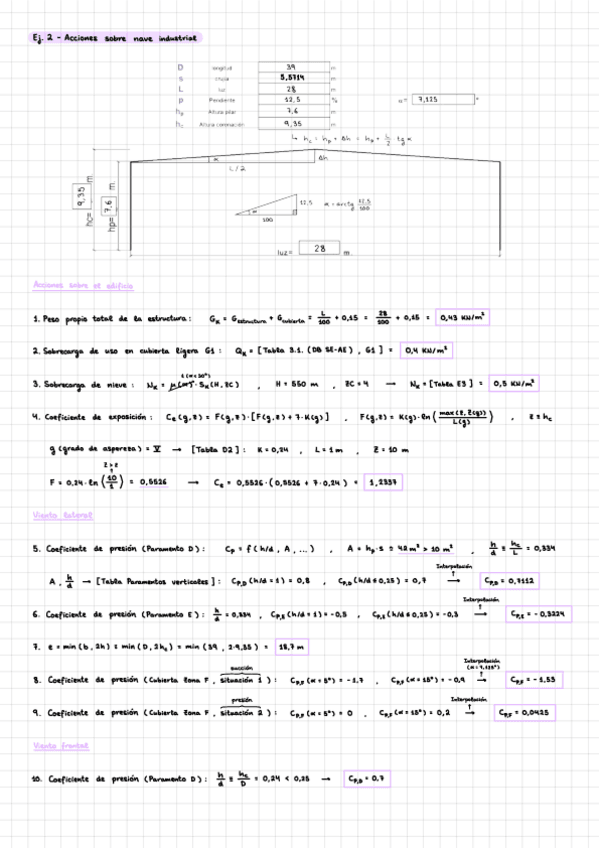 Ej. 2 - Acciones sobre nave industrial
D longitud 39 m
s crujía 5,5714 m
L luz 28 m
p Pendiente 12,5 %
α= 7,125 °
hp Altura pilar 7,6 m
hc Altura coronación 9,35 m
↳ hc = hp + Δh = hp + L/2 · tg α
α
Δh
L/2
hc= 9,35 m.
hp= 7,6 m.
α 12,5 α = arctg 12,5/100
100
luz= 28 m.
Acciones sobre el edificio
1. Peso propio total de la estructura: GK = Gestructura + Gcubierta = L/100 + 0,15 = 28/100 + 0,15 = 0,43 KN/m²
2. Sobrecarga de uso en cubierta ligera G1: QK = [Tabla 3.1. (DB SE-AE), G1] = 0,4 KN/m²
1 (α<30°)
3. Sobrecarga de nieve: NK = μ(α) · SK(H, ZC) , H = 550 m , ZC = 4 → NK = [Tabla E3] = 0,5 KN/m²
4. Coeficiente de exposición: Ce(g,z) = F(g,z)·[F(g,z) + 7·K(g)] , F(g,z) = K(g)·ln(max(z, Z(g))/L(g)) , z = hc
g (grado de aspereza) = V → [Tabla D2]: K = 0,24 , L = 1 m , Z = 10 m
Z > z
F = 0,24·ln(10/1) = 0,5526 → Ce = 0,5526·(0,5526 + 7·0,24) = 1,2337
Viento lateral
5. Coeficiente de presión (Paramento D): Cp = f(h/d, A, ...) , A = hp·s = 42 m² > 10 m² , h/d = hc/L = 0,334
Interpolación
A, h/d → [Tabla Paramentos verticales]: Cp,D (h/d = 1) = 0,8 , Cp,D (h/d ≤ 0,25) = 0,7 → Cp,D = 0,7112
Interpolación
6. Coeficiente de presión (Paramento E): h/d = 0,334 , Cp,E (h/d = 1) = -0,5 , Cp,E (h/d ≤ 0,25) = -0,3 → Cp,E = -0,3224
7. e = min(b, 2h) = min(D, 2hc) = min(39, 2·9,35) = 18,7 m
succión
Interpolación
(α = 7,125°)
8. Coeficiente de presión (Cubierta Zona F, situación 1): Cp,F (α = 5°) = -1,7 , Cp,F (α = 15°) = -0,9 → Cp,F = -1,53
presión
Interpolación
9. Coeficiente de presión (Cubierta Zona F, situación 2): Cp,F (α = 5°) = 0 , Cp,F (α = 15°) = 0,2 → Cp,F = 0,0425
Viento frontal
10. Coeficiente de presión (Paramento D): h/d = hc/D = 0,24 < 0,25 → Cp,D = 0,7